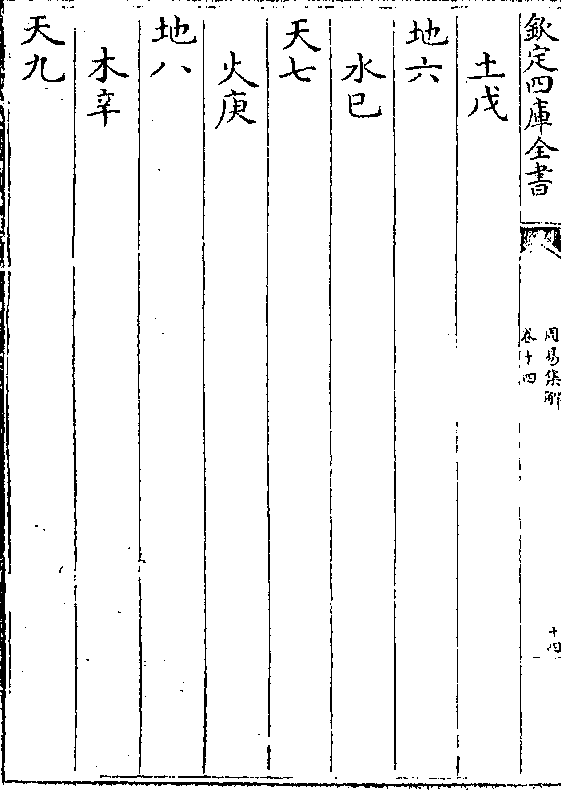 欽定四庫全書
周易集解
卷十四
十四
土戊
地六
水巳
天七
火庚
地八
木辛
天九